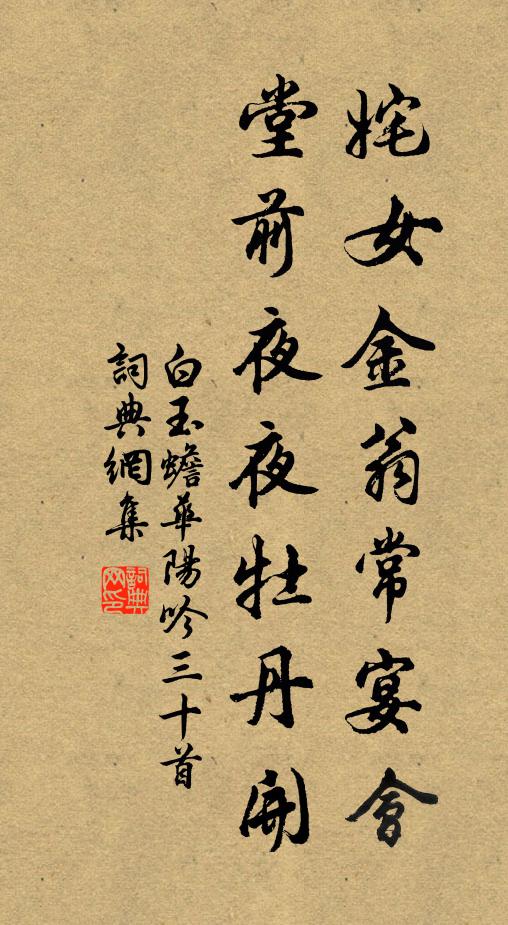 姹女金翁常宴會
堂前夜夜牡丹開
白玉蟾華陽吟三十首
詞典網集
詞典网印